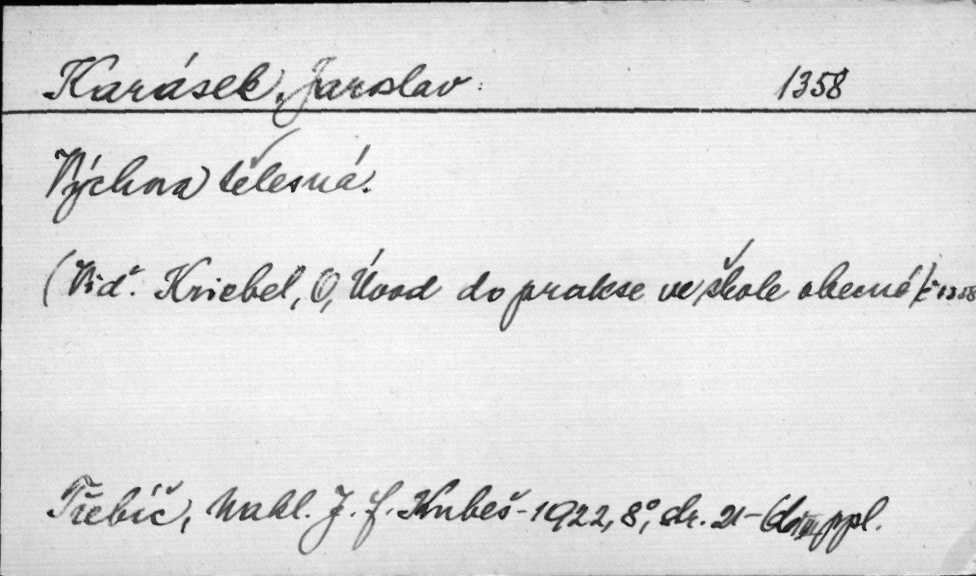 Karásek, Jaroslav. 1358
Výchova tělesná.
(Viď. Kriebel, O, Úvod do prakse ve škole obecné) č 1358
Třebíč, Nakl. J. f. Kubeš - 1922, 8°, str. 21 - ppl.